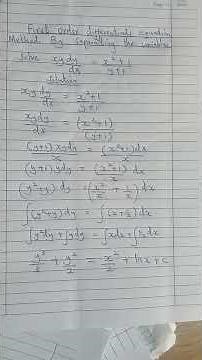 First Order differential equation
Method By Separating the variables
Solve xy dy/dx = x²+1/y+1
Solution
xy dy/dx = x²+1/y+1
xy dy/dx = (x²+1)/(y+1)
(y+1) xy dy/x = (x²+1) dx/x
(y+1) y dy = (x²+1)/x dx
(y²+y) dy = (x²/x + 1/x) dx
∫(y²+y) dy = ∫(x+1/x) dx
∫y²dy + ∫y dy = ∫x dx + ∫1/x dx
y³/3 + y²/2 = x²/2 + ln x + c